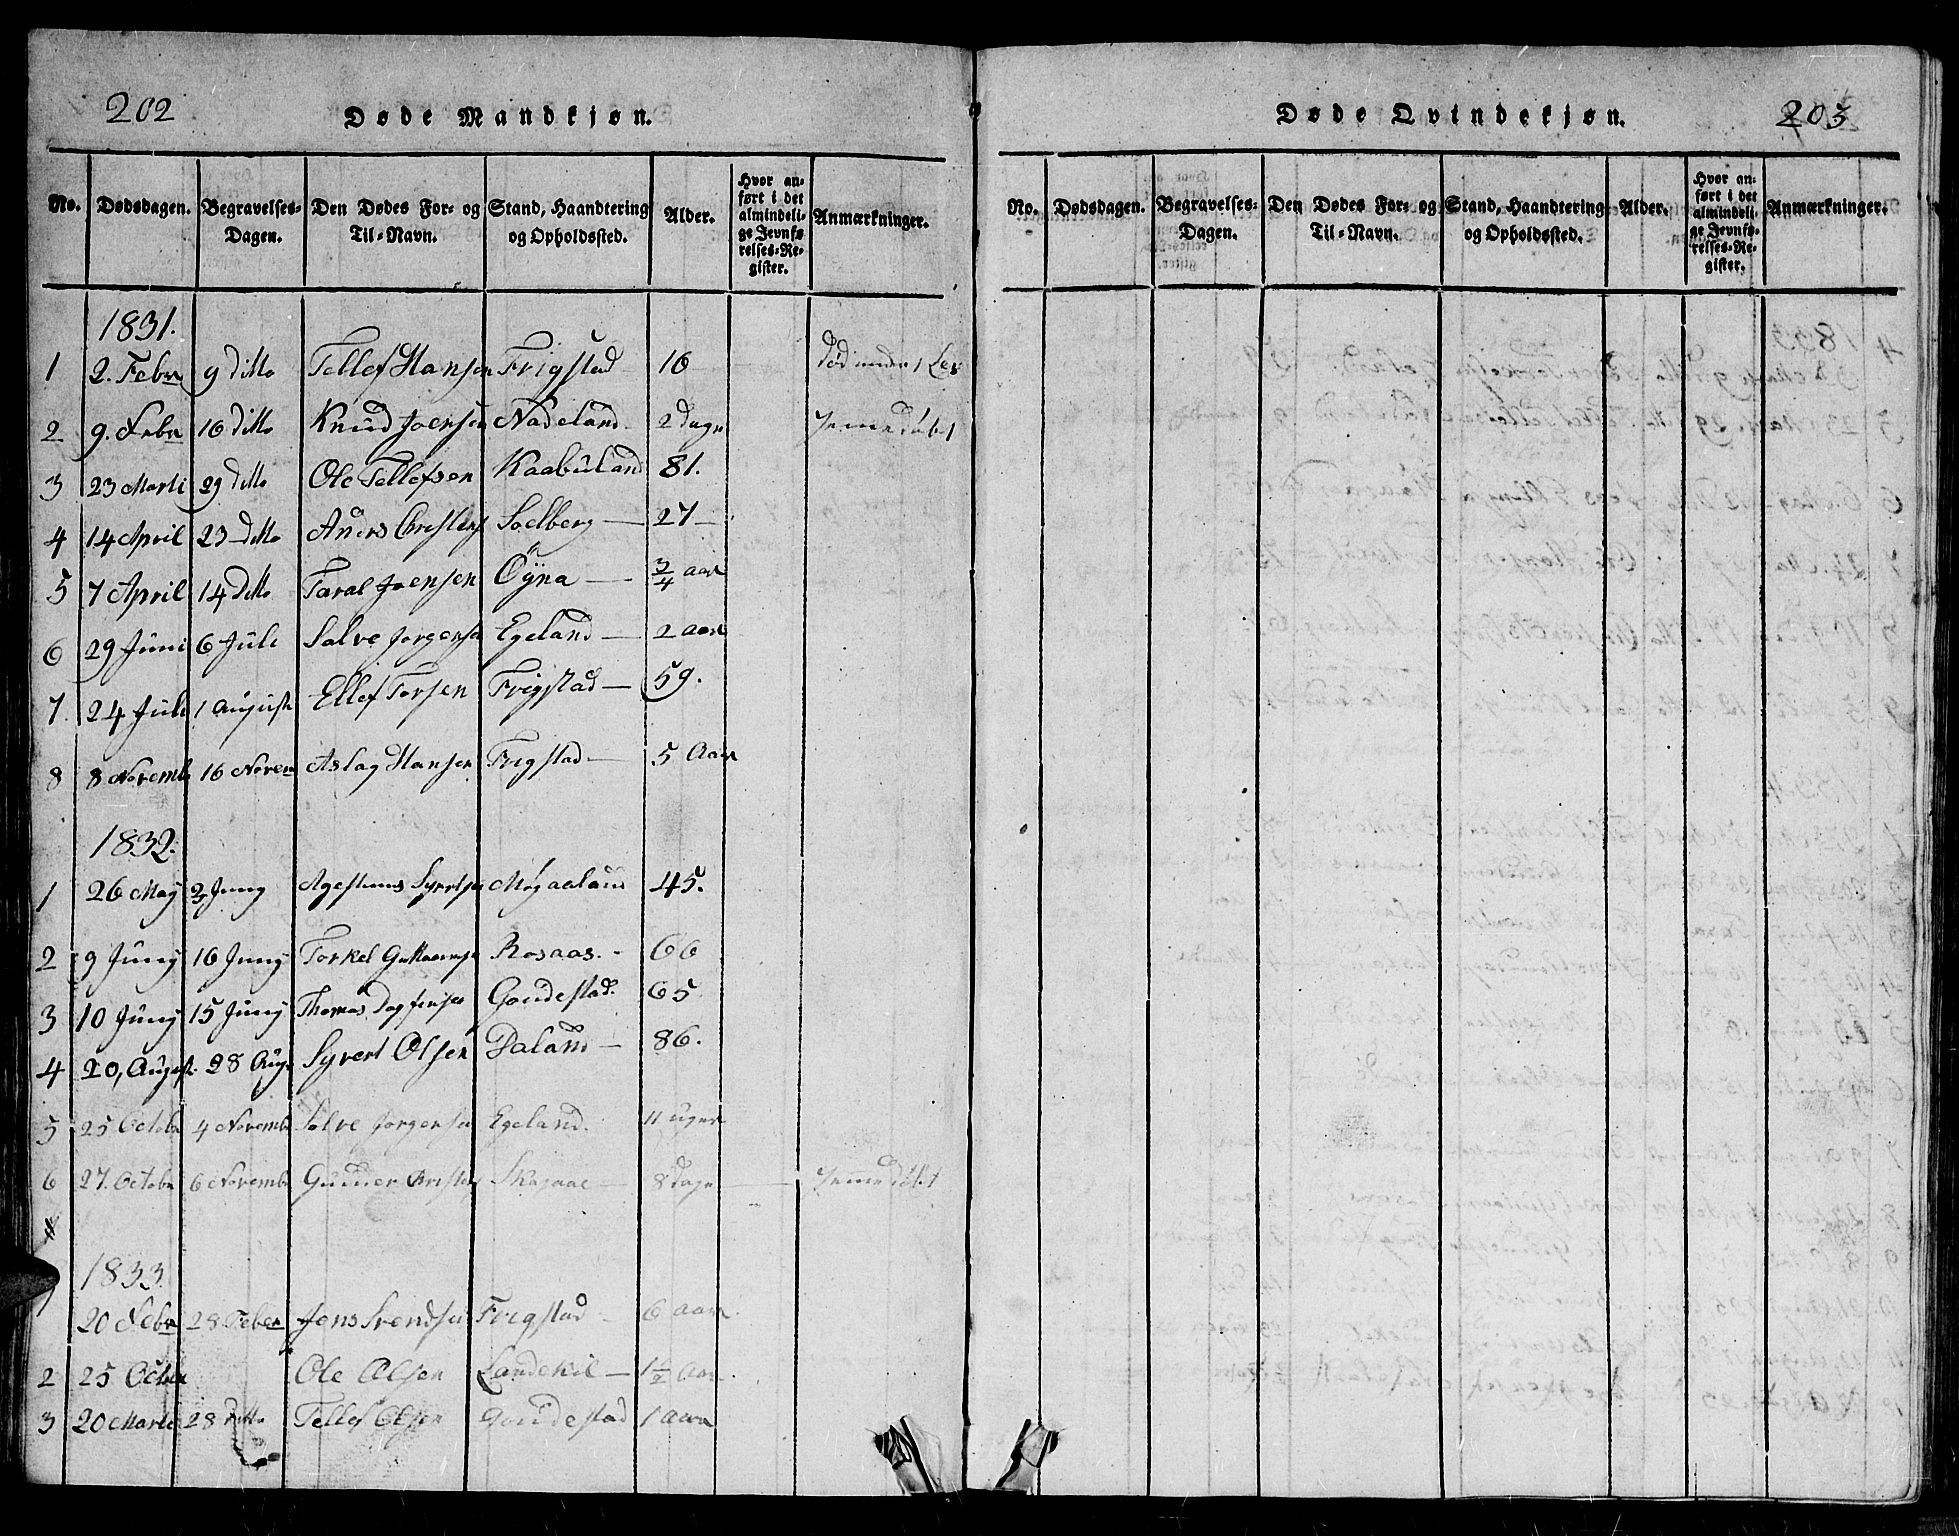 202
Døde Mandkjøn.
No. Dødsdagen. Begravelses-Dagen. Den Dødes For- og Til-Navn. Stand, Haandtering og Opholdssted. Alder. Hvor anført i det almindelige Jevnførelses-Register. Anmærkninger.
1831.
1 2. Febr 9 ditto Tellef Hansen Frigstad 16
2 9. Febr 16 ditto Knud Joensen Nadeland 2 Dage
3 23 Marti 29 ditto Ole Tellefsen Kaabuland 81.
4 14 April 23 ditto Aners Christens Soelberg 27
5 7 April 14 ditto Taral Joensen Öÿna 3/4 aar
6 29 Juni 6 Juli Salve Jorgensen Egeland 2 aar
7. 24 Juli 1 August Ellef Torsen Frigstad 59.
8 8 Novemb 16 Novem Aslag Hansen Frigstad 5 Aar
1832.
1 26 May 2 Juny 45.
2 9 Juny 16 Juny Torkel Rosaas. 66
3 10 Juny 15 Juny Thomas Goudestad. 65
4 20, August. 28 Aug. Syvert Olsen Daland 86.
5 25 Octobr 4 Novembr Salve Jorgensen Egeland. 11 uger
6 27. Octobr 6 Novembr Gunner 8 Dage
1833
1 20 Febr 28 Feber Jens Svendsen Frigstad 6 aar
2 25 Octbr Ole Olsen Landekil 1 1/2 Aar
3 20 Marti 28 ditto Tellef Olsen Goudestad 1 aar
Døde Qvindekjøn.
203
No. Dødsdagen. Begravelses-Dagen. Den Dødes For- og Til-Navn. Stand, Haandtering og Opholdssted. Alder. Hvor anført i det almindelige Jevnførelses-Register. Anmærkninger.